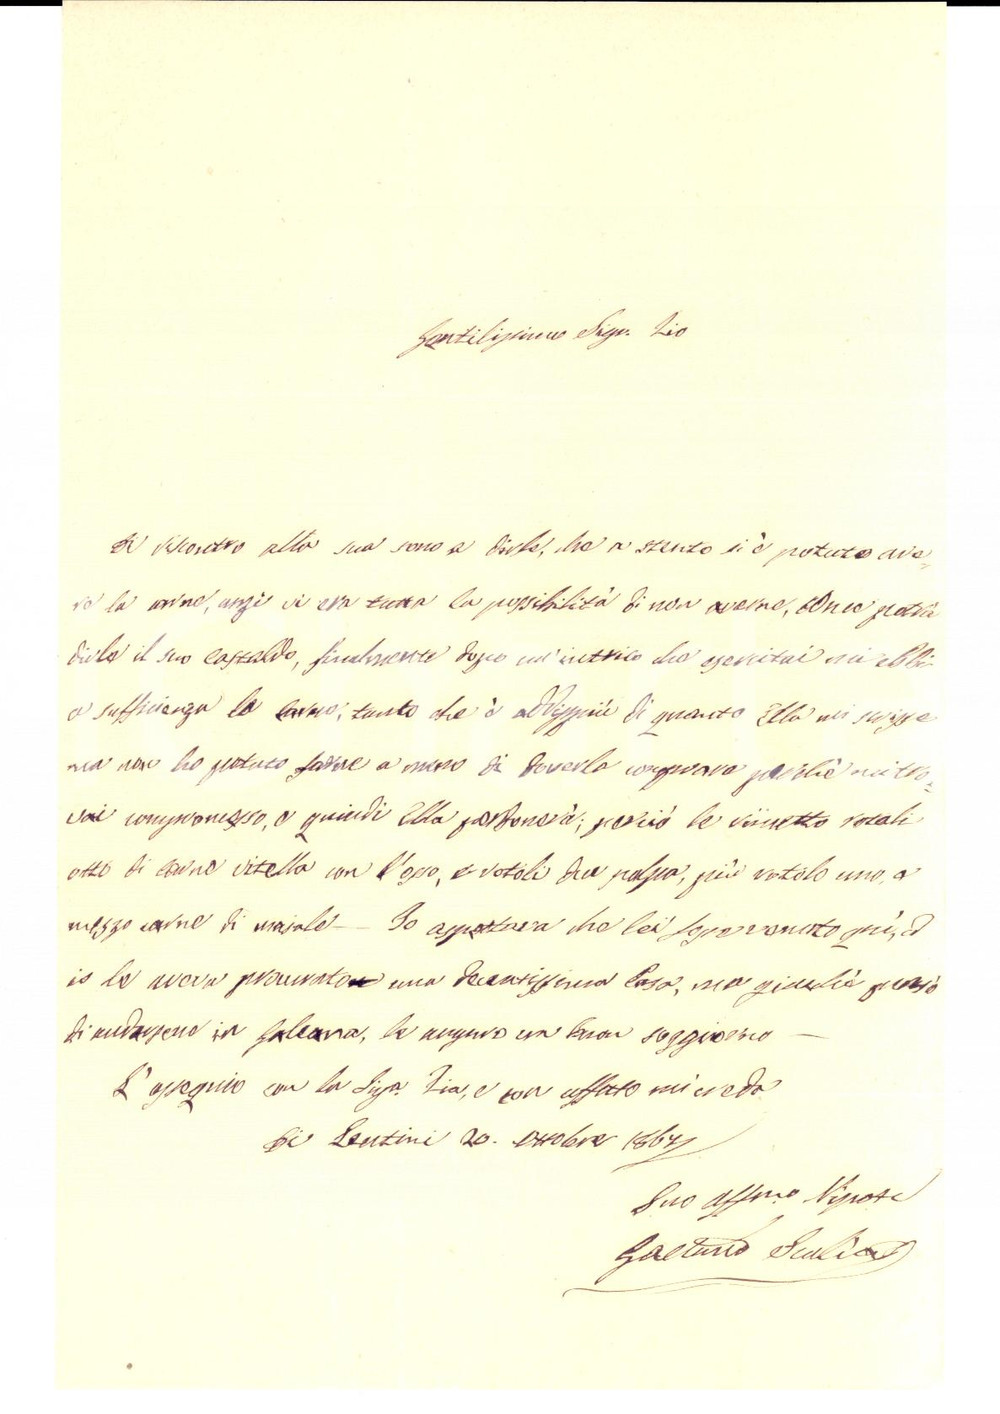 Gentilissimo Sigr. Zio
Di riscontro alla sua sono a dirle, che a stento si è potuto ave-
re la carne, anzi vi era tutta la possibilità di non averne, come potrà
dirle il suo Castaldo, finalmente dopo un'intrico che esercitai mi ebbi
a sufficienza la carne, tanto che è addippiù di quanto Ella mi scrisse
ma non ho potuto farne a meno di doverla comprare perchè mi tro-
vai compromesso, e quindi Ella perdonerà; perciò le rimetto rotoli
otto di carne vitella con l'osso, e rotoli due polpa, più rotolo uno, e
mezzo carne di majale — Io aspettava che lei sepre venuto quì, ed
io le aveva procurato una decentissima Casa, ma giacchè pensò
di andarsene in, le auguro un buon soggiorno —
L'ossequio con la Sigra. Zia, e con affetto mi creda
Di Lentini 20. Ottobre 1867
Suo Affmo Nipote
Gaetano